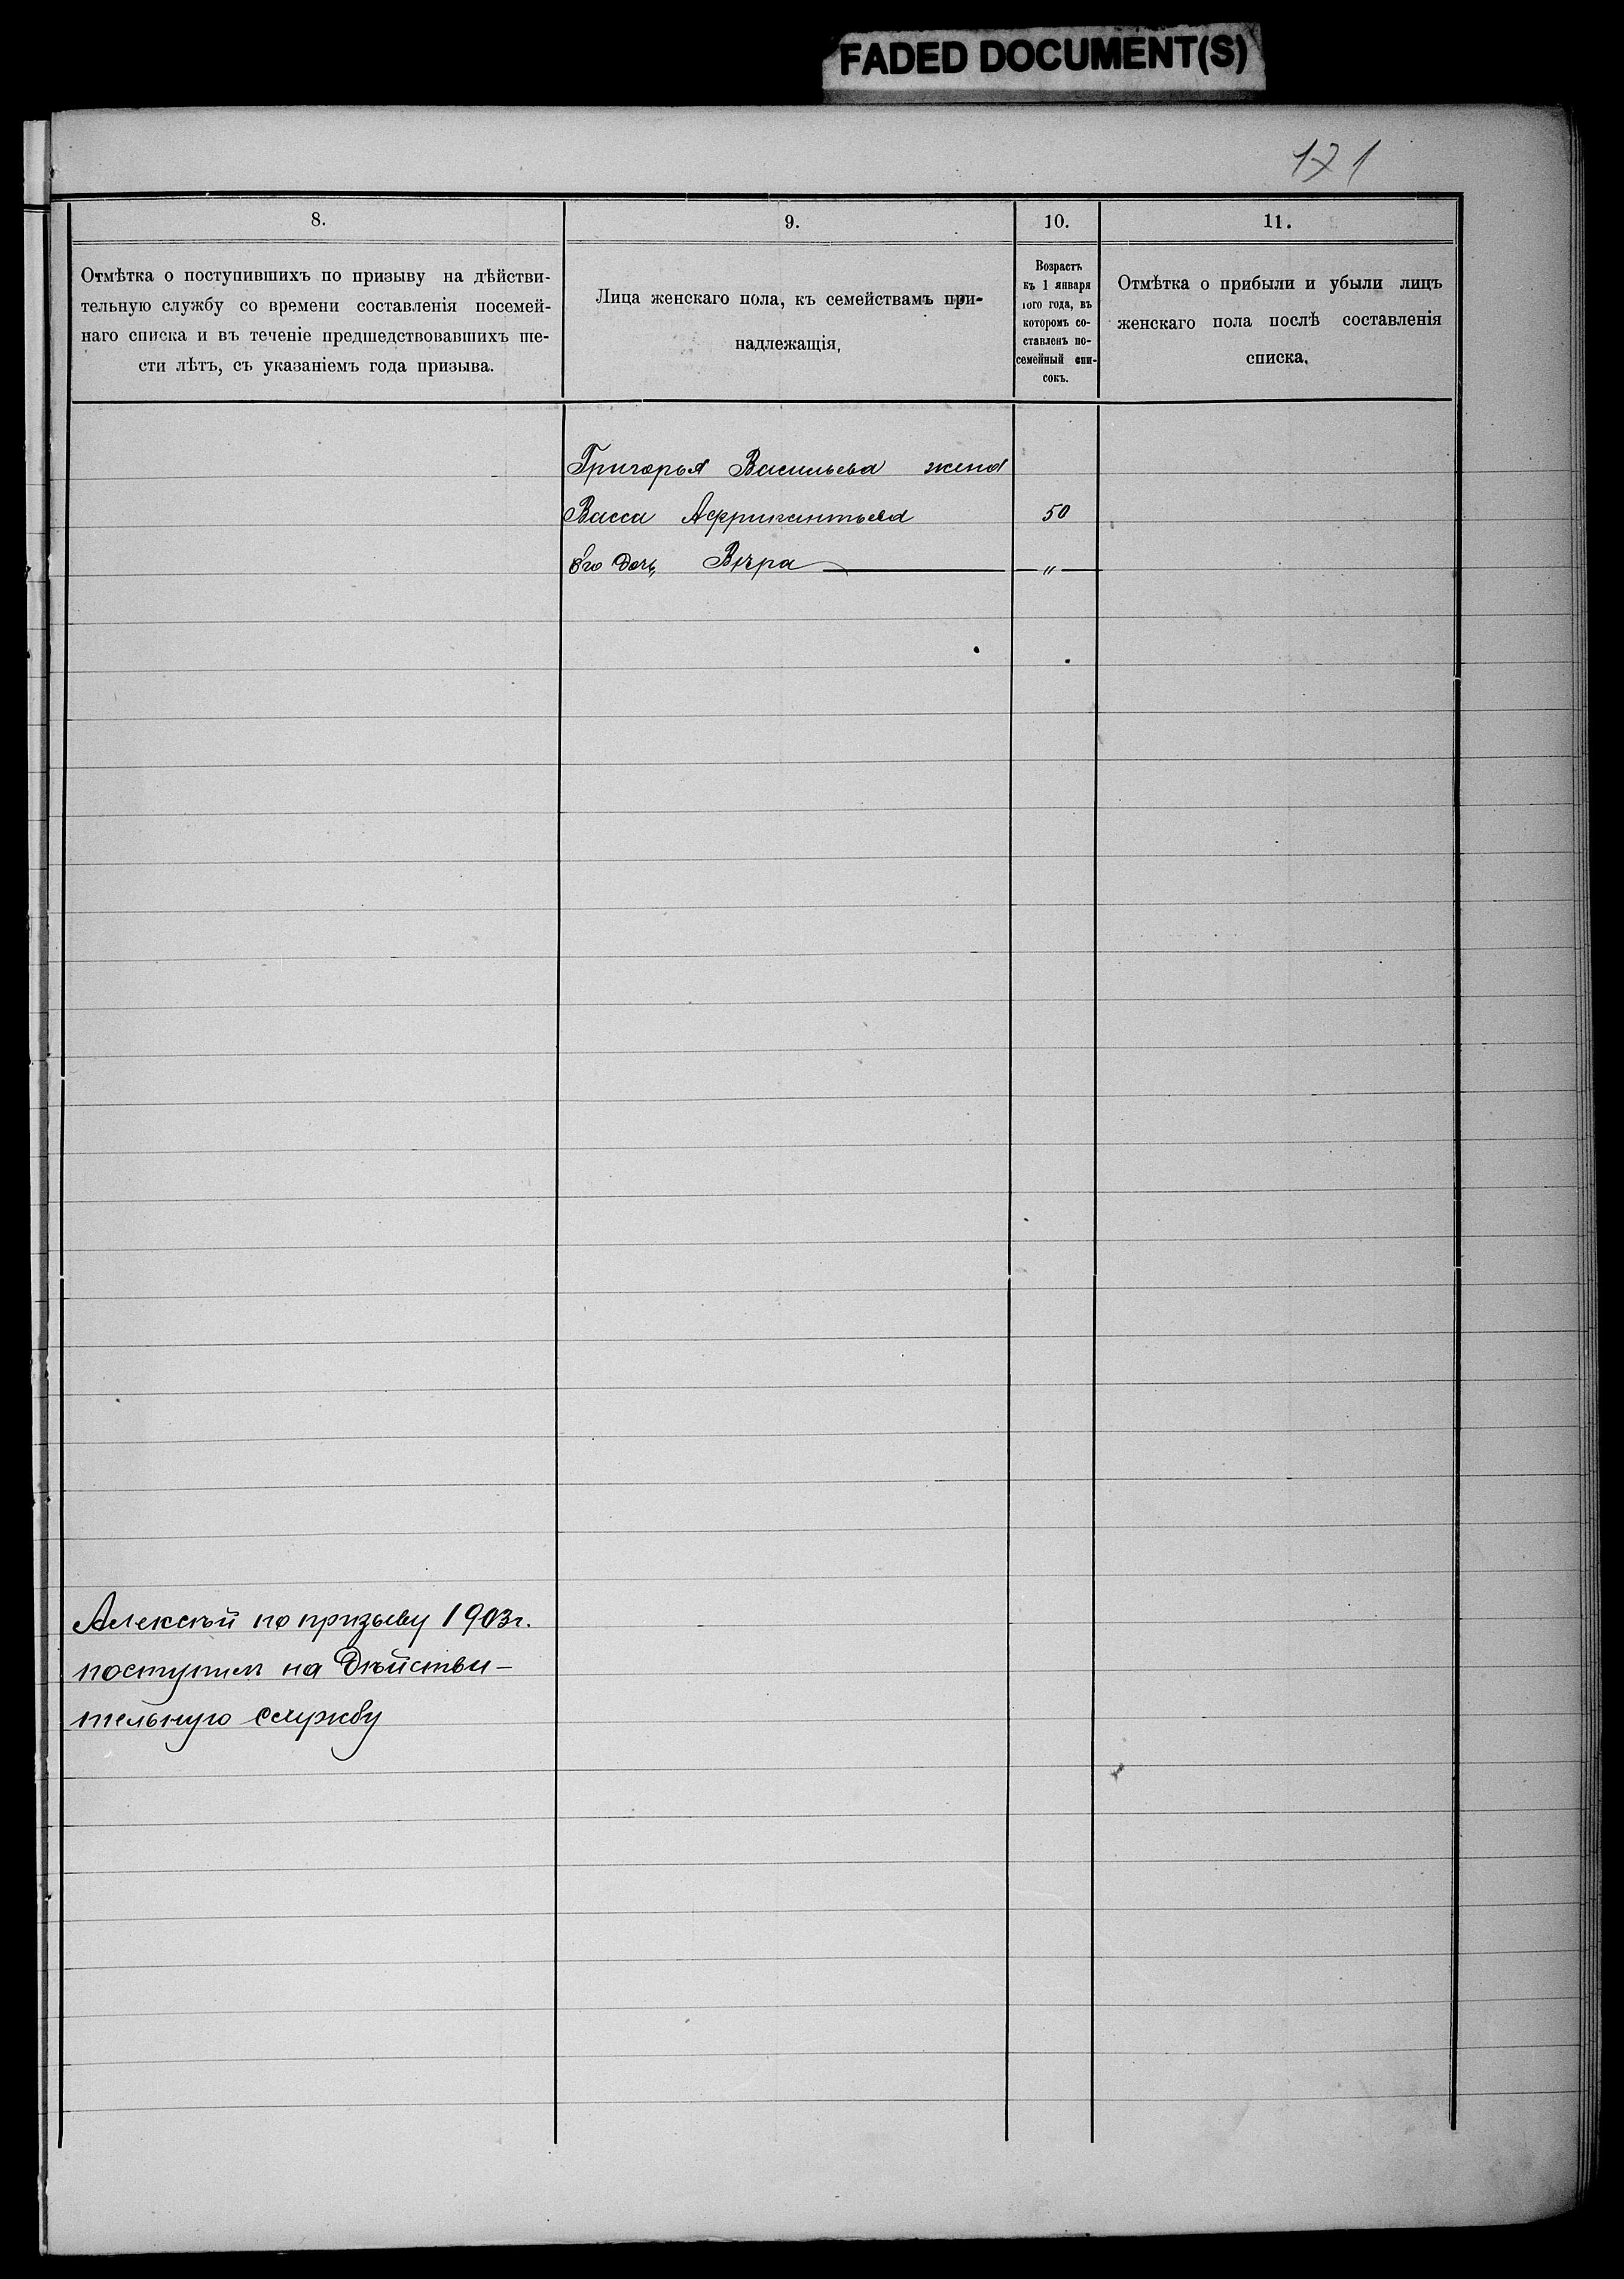 FADED DOCUMENT(S)
171
8.
9.
10.
11.
Отмѣтка о поступившихъ по призыву на дѣйстви-
тельную службу со времени составленія посемей-
наго списка и въ теченіе предшедствовавшихъ ше-
сти лѣтъ, съ указаніемъ года призыва.
Лица женскаго пола, къ семействамъ при-
надлежащія,
Возрастъ
къ 1 января
того года, въ
которомъ со-
ставленъ по-
семейный спи-
сокъ.
Отмѣтка о прибыли и убыли лицъ
женскаго пола послѣ составленія
списка.
Григорья Васильева жена
Васса Африкантьева 50
Его дочь Вѣра — „ —
Алексѣй по призыву 1903 г.
поступил на дѣйстви-
тельную службу